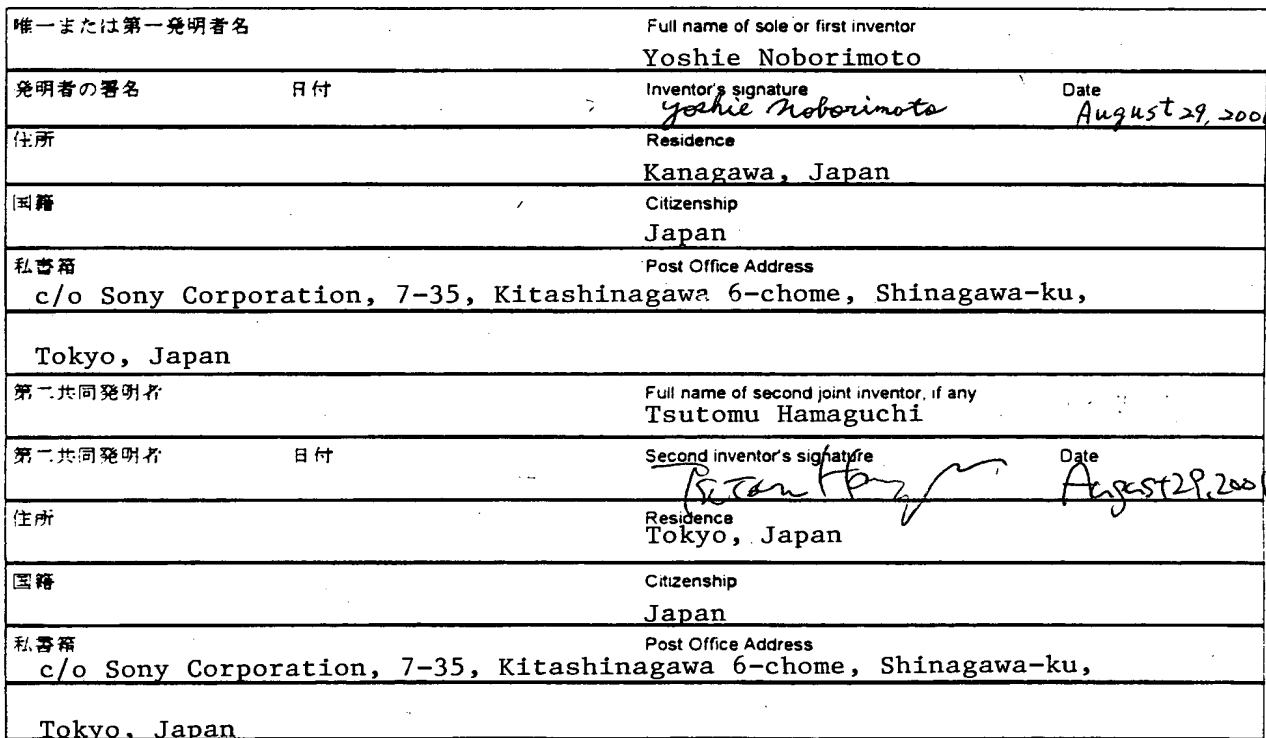 唯一または第一発明者名 Full name of sole or first inventor
Yoshie Noborimoto
発明者の署名 日付 Inventor's signature Date
Yoshie Noborimoto August 29, 2001
住所 Residence
Kanagawa, Japan
国籍 Citizenship
Japan
私書箱 Post Office Address
c/o Sony Corporation, 7-35, Kitashinagawa 6-chome, Shinagawa-ku,
Tokyo, Japan
第二共同発明者 Full name of second joint inventor, if any
Tsutomu Hamaguchi
第二共同発明者 日付 Second inventor's signature Date
August 29, 2001
住所 Residence
Tokyo, Japan
国籍 Citizenship
Japan
私書箱 Post Office Address
c/o Sony Corporation, 7-35, Kitashinagawa 6-chome, Shinagawa-ku,
Tokyo, Japan